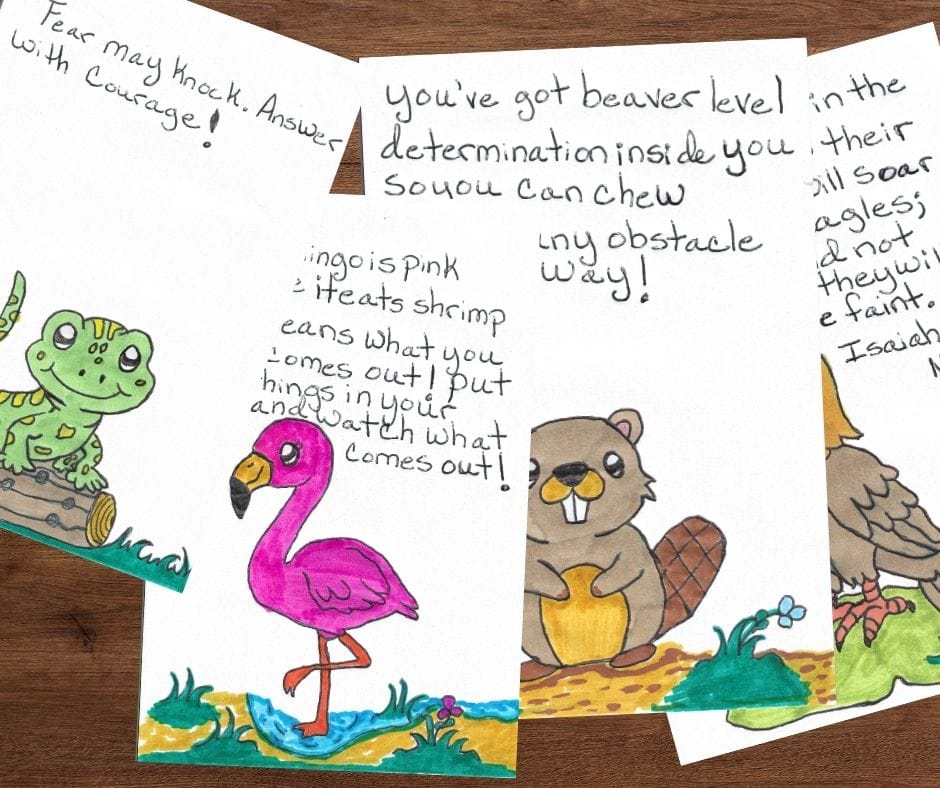 Fear may knock. Answer
with Courage!
you've got beaver level
determination inside you
so you can chew
ny obstacle
way!
ingo is pink
it eats shrimp
eans what you
comes out! put
hings in your
and watch what
comes out!
in the
their
ill soar
agles;
d not
they wil
e faint.
Isaiah